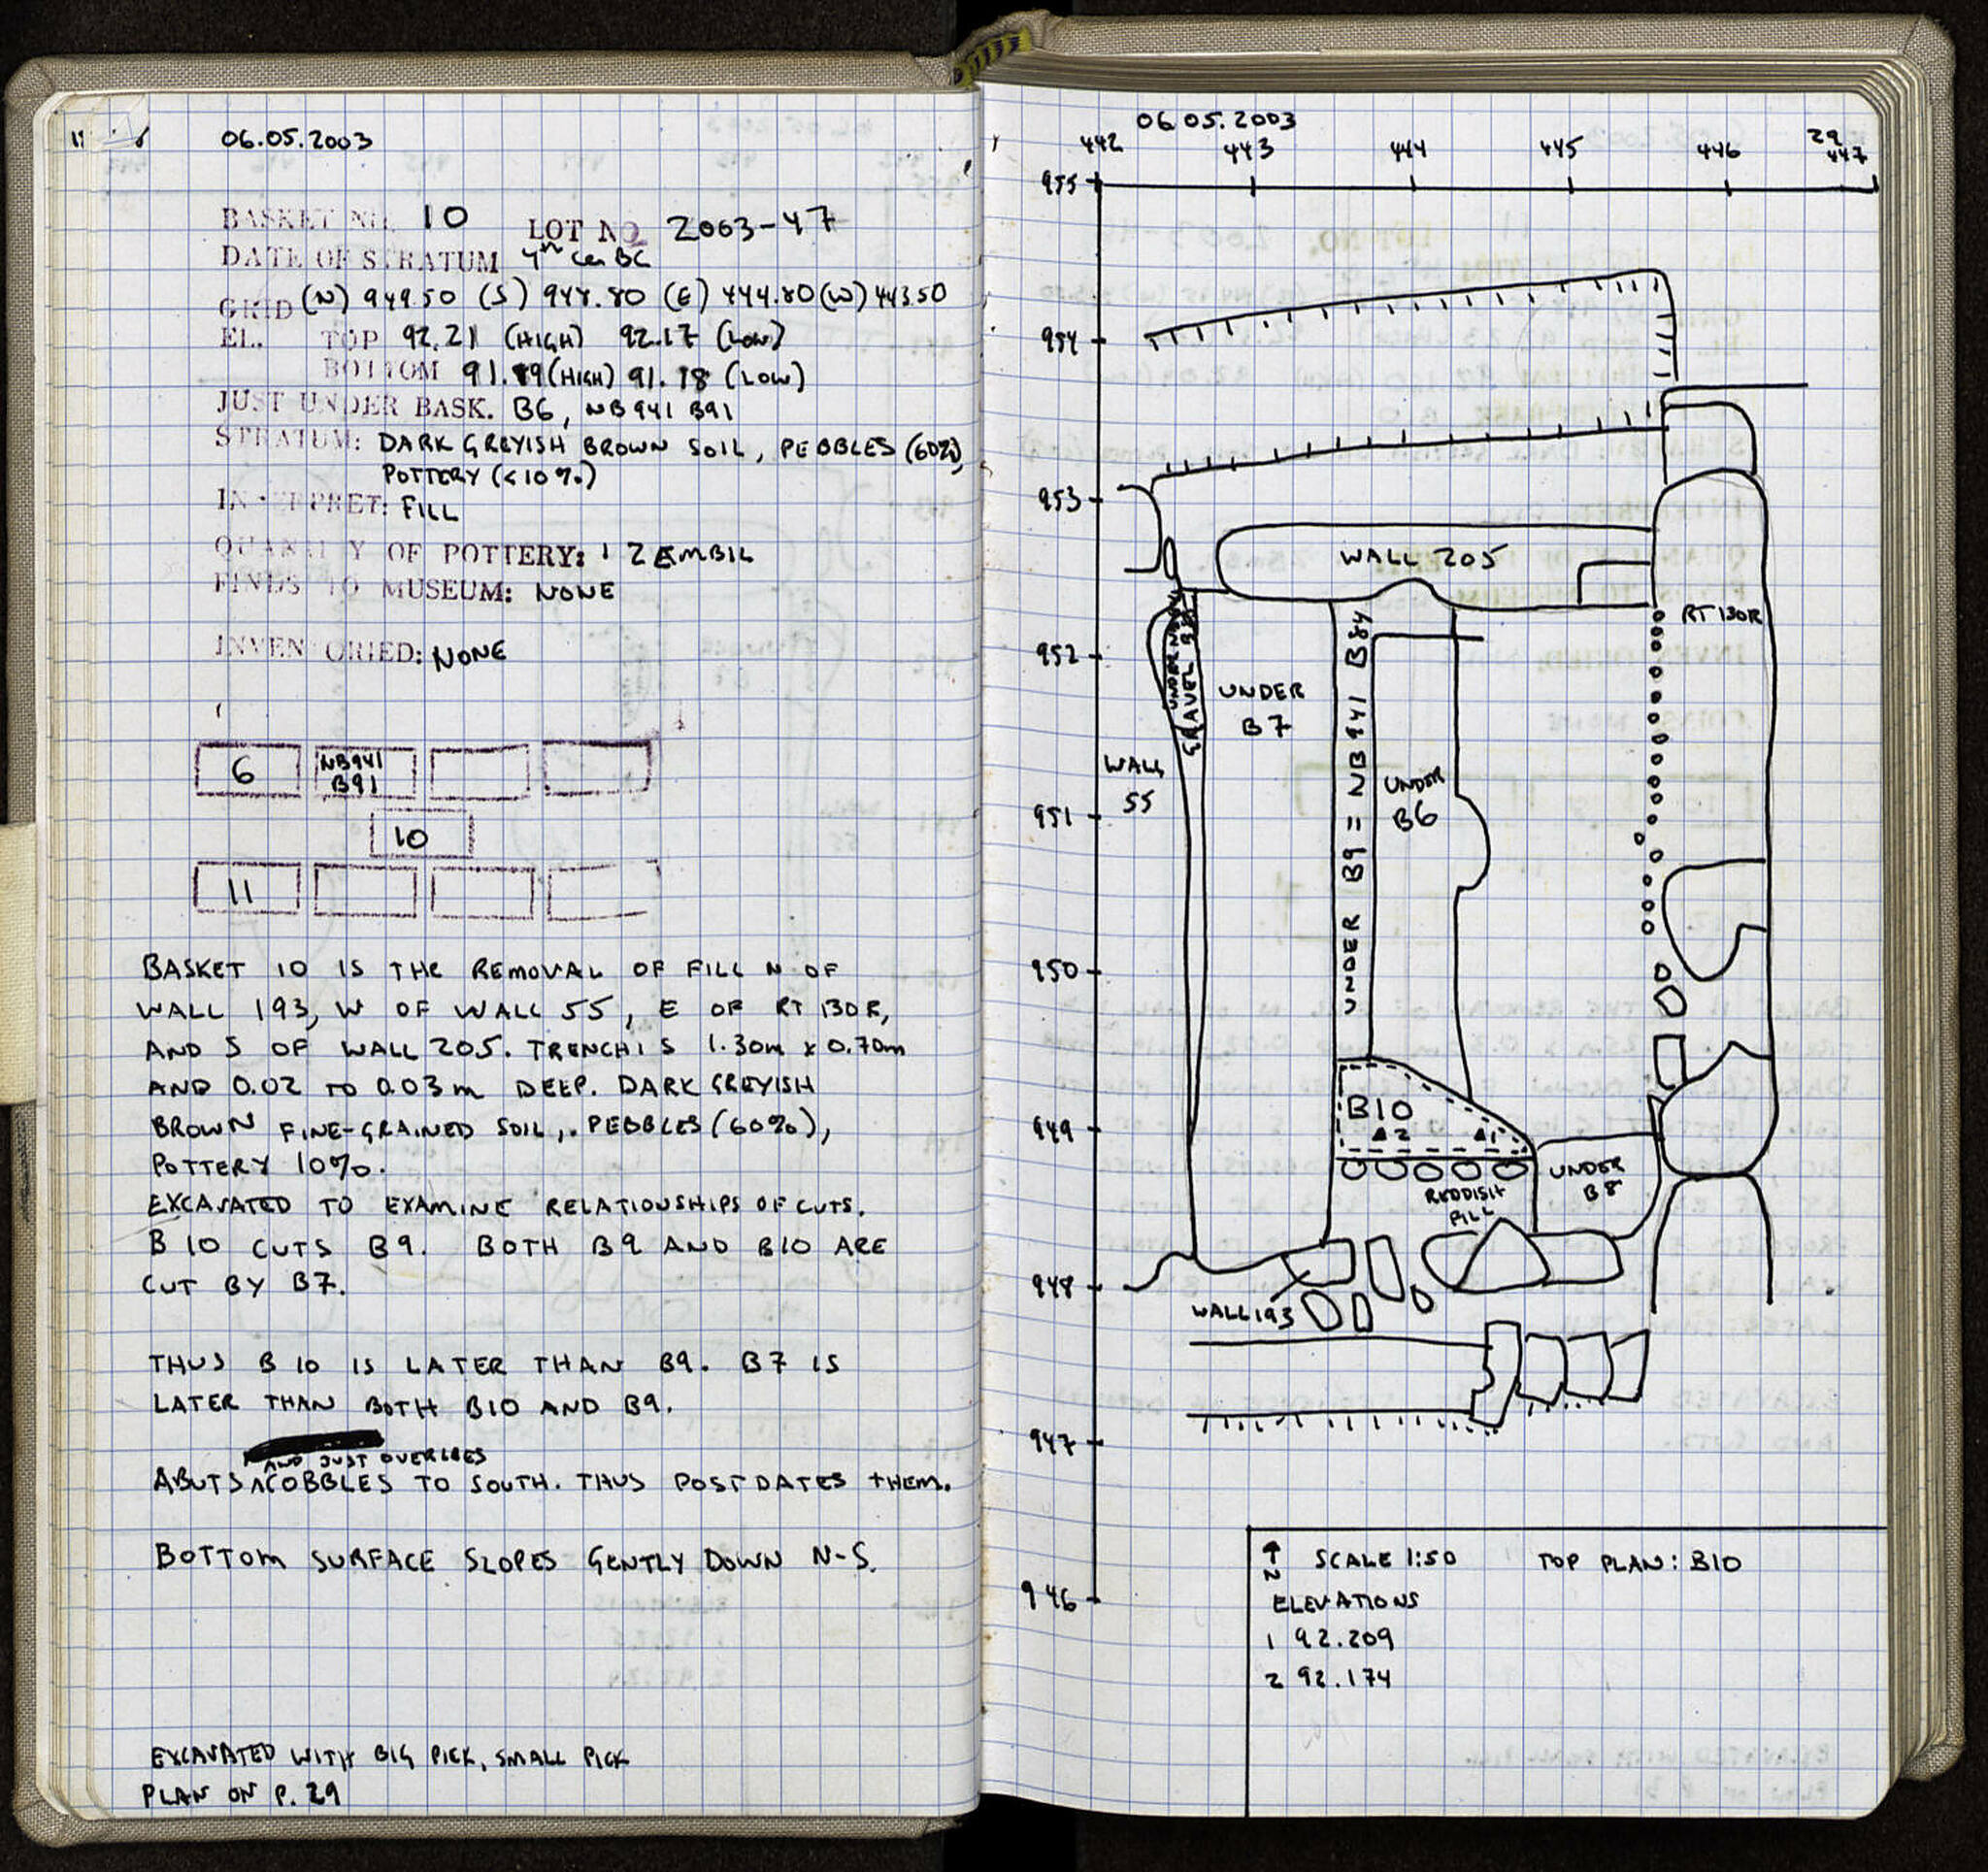 06.05.2003
BASKET NO. 10 LOT NO. 2003-47
DATE OF STRATUM 4th Cen BC
GRID (N) 949.50 (S) 948.80 (E) 444.80 (W) 443.50
EL. TOP 92.21 (HIGH) 92.17 (LOW)
BOTTOM 91.19 (HIGH) 91.18 (LOW)
JUST UNDER BASK. B6, NB941 B91
STRATUM: DARK GREYISH BROWN SOIL, PEBBLES (60%),
POTTERY (<10%)
INTERPRET: FILL
QUANTITY OF POTTERY: 1 ZEMBIL
FINDS TO MUSEUM: NONE
INVENTORIED: NONE
6 NB941
B91
10
11
BASKET 10 IS THE REMOVAL OF FILL N OF
WALL 193, W OF WALL 55, E OF RT 130R,
AND S OF WALL 205. TRENCH IS 1.30m x 0.70m
AND 0.02 TO 0.03m DEEP. DARK GREYISH
BROWN FINE-GRAINED SOIL, PEBBLES (60%),
POTTERY 10%.
EXCAVATED TO EXAMINE RELATIONSHIPS OF CUTS.
B10 CUTS B9. BOTH B9 AND B10 ARE
CUT BY B7.
THUS B10 IS LATER THAN B9. B7 IS
LATER THAN BOTH B10 AND B9.
AND JUST OVERLIES
ABUTS ^ COBBLES TO SOUTH. THUS POSTDATES THEM.
BOTTOM SURFACE SLOPES GENTLY DOWN N-S.
EXCAVATED WITH BIG PICK, SMALL PICK
PLAN ON P. 29
06.05.2003
29
442 443 444 445 446 447
955
954
953
WALL 205
RT 130R
952
UNDER NB941
GRAVEL
UNDER
B7
UNDER B9 = NB941 B84
WALL
55
UNDER
B6
951
950
B10
949
2 1
UNDER
B8
REDDISH
FILL
948
WALL 193
947
946
N SCALE 1:50 TOP PLAN: B10
ELEVATIONS
1 92.209
2 92.174